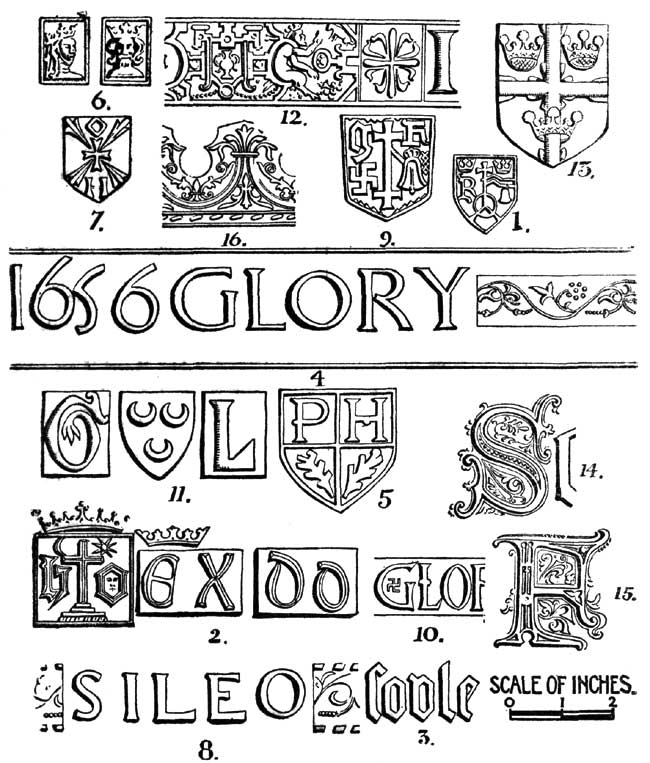 6.
12.
I
13.
7.
16.
9.
1.
1656 GLORY
4
G
L
P H
11.
5
S
14.
EX DO
GLOR
F
15.
2.
10.
SILEO
SCALE OF INCHES.
0 1 2
8.
3.